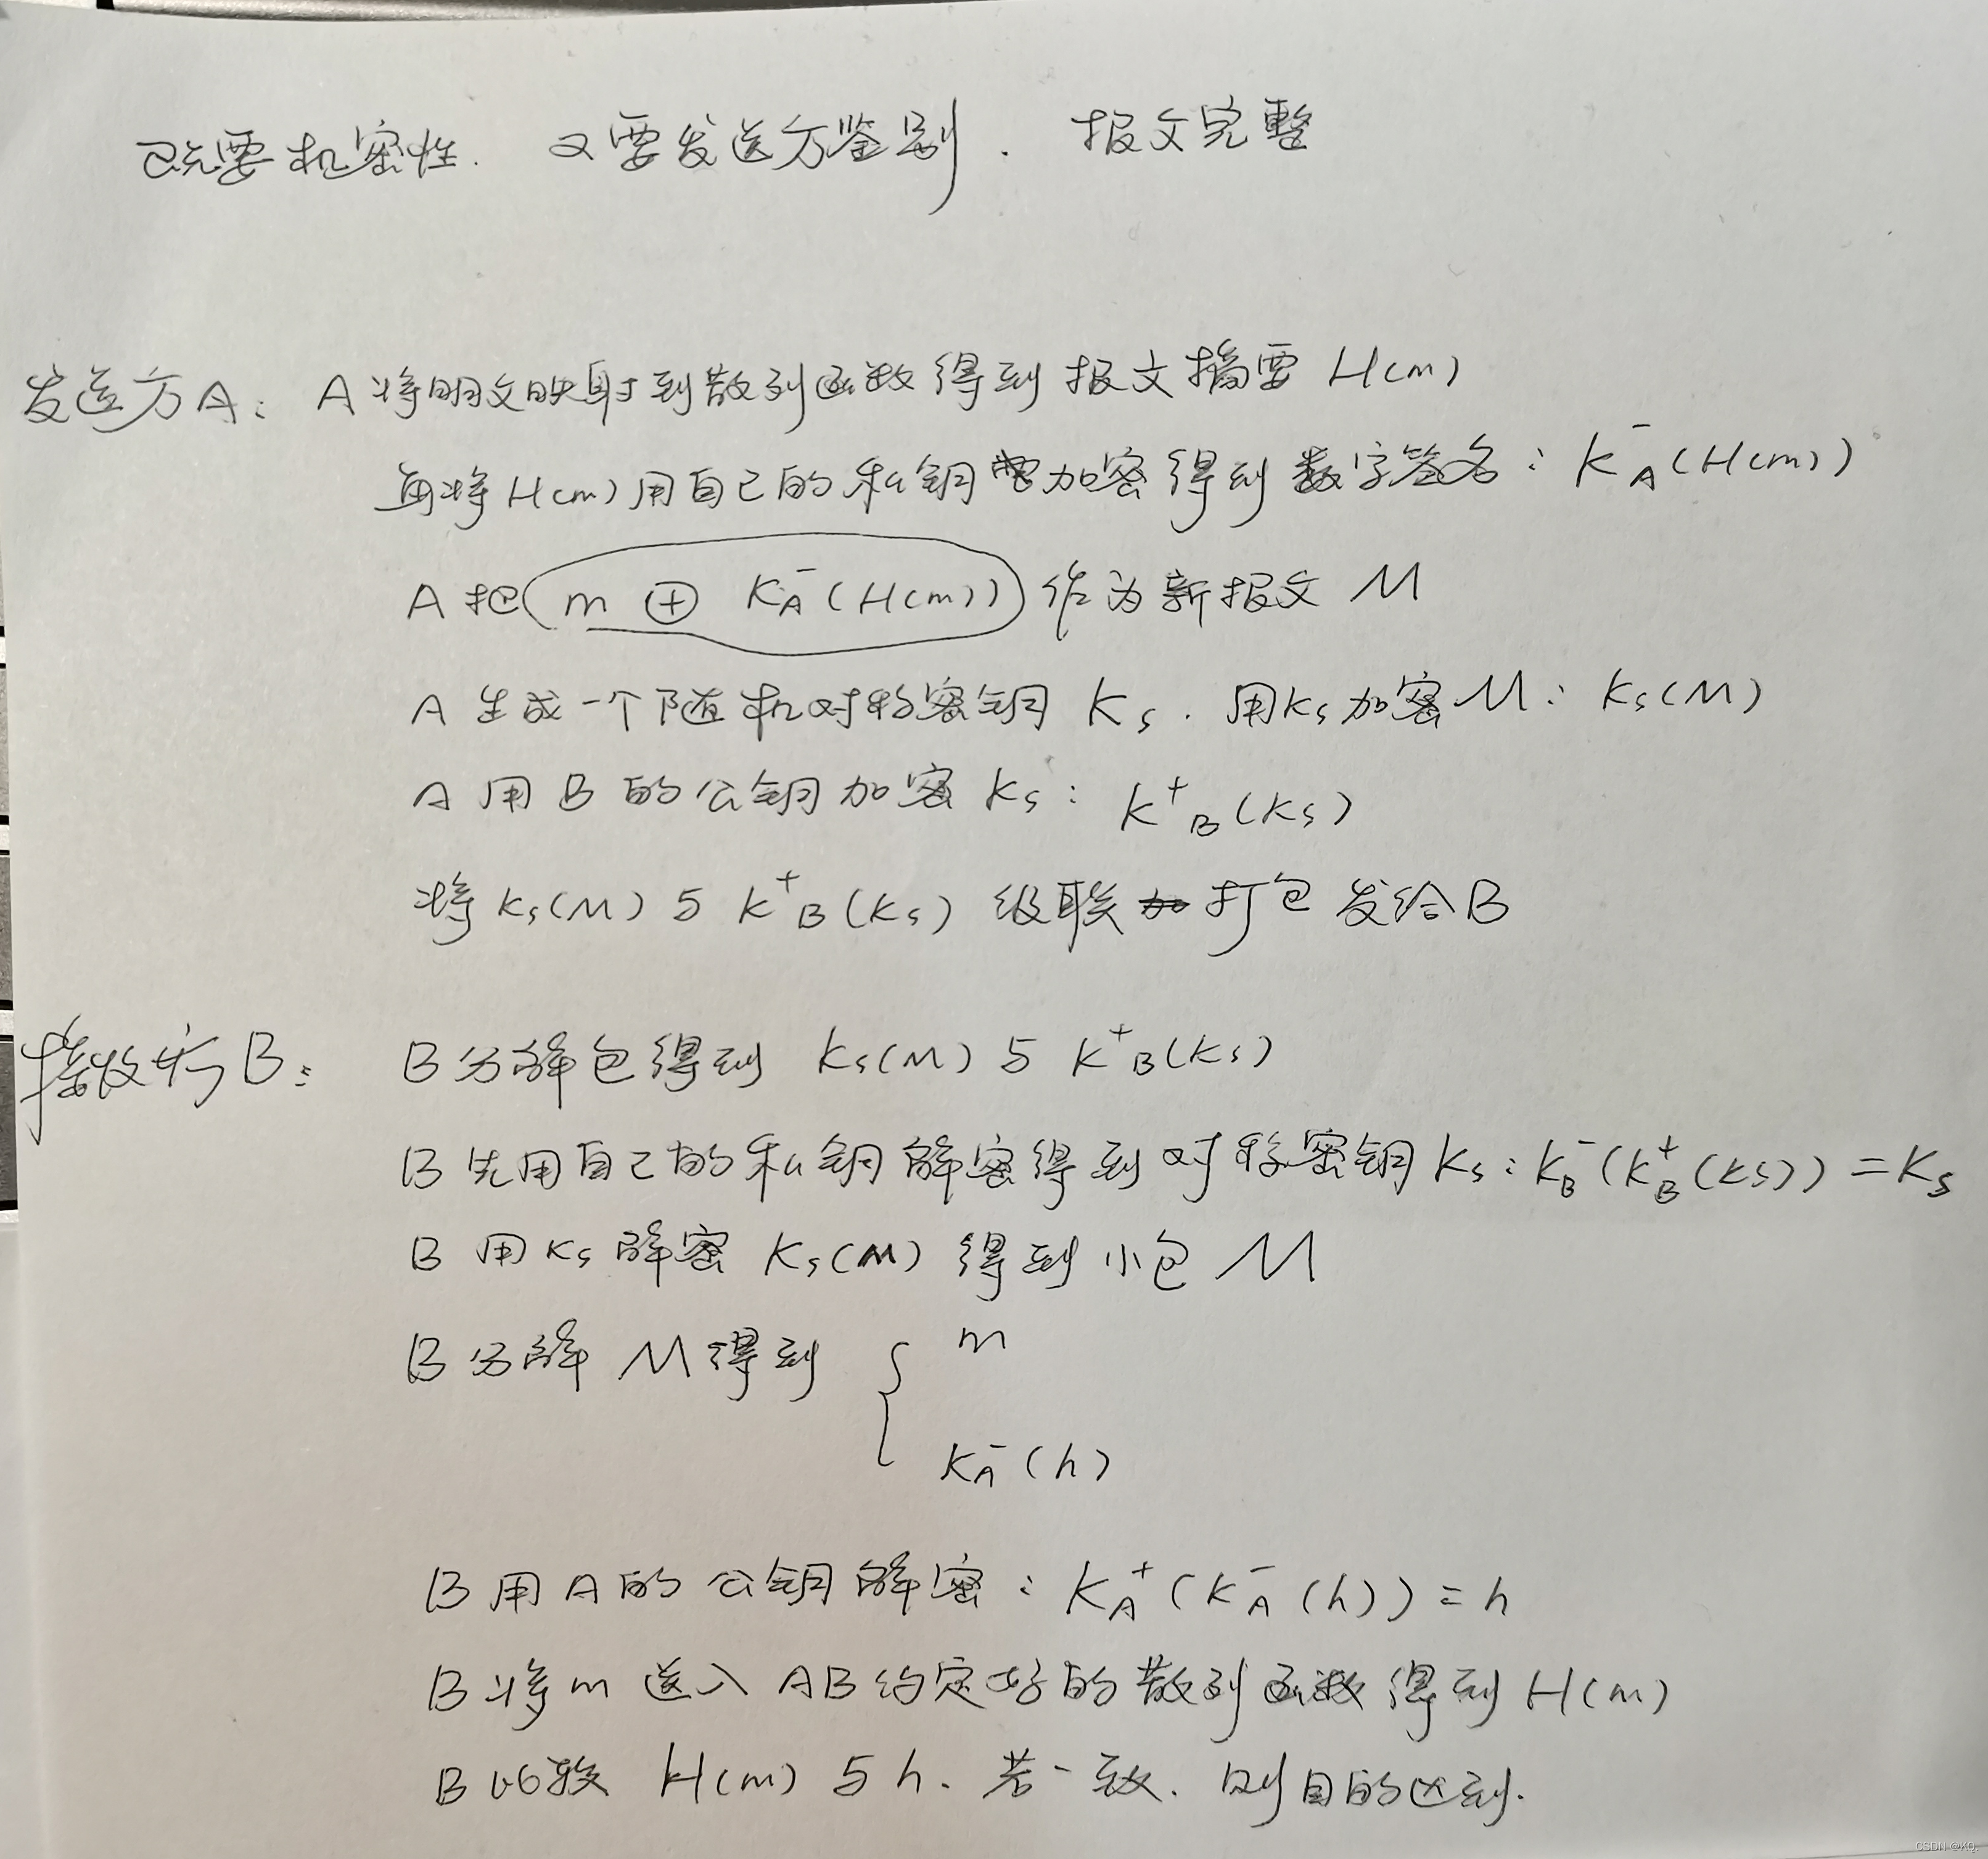 既要机密性. 又要发送方鉴别. 报文完整
发送方A: A将明文映射到散列函数得到报文摘要 H(m)
再将H(m)用自己的私钥加密得到数字签名: K⁻A(H(m))
A把 m ⊕ K⁻A(H(m)) 作为新报文 M
A生成一个随机对称密钥 Ks. 用Ks加密M: Ks(M)
A用B的公钥加密Ks: K⁺B(Ks)
将Ks(M)与K⁺B(Ks) 级联打包发给B
接收方B: B分解包得到 Ks(M)与K⁺B(Ks)
B先用自己的私钥解密得到对称密钥Ks: K⁻B(K⁺B(Ks))=Ks
B用Ks解密Ks(M)得到小包M
B分解M得到 { m
K⁻A(h)
B用A的公钥解密: K⁺A(K⁻A(h))=h
B将m送入AB约定好的散列函数得到H(m)
B比较 H(m)与h. 若一致. 则目的达到.
CSDN @KQ.